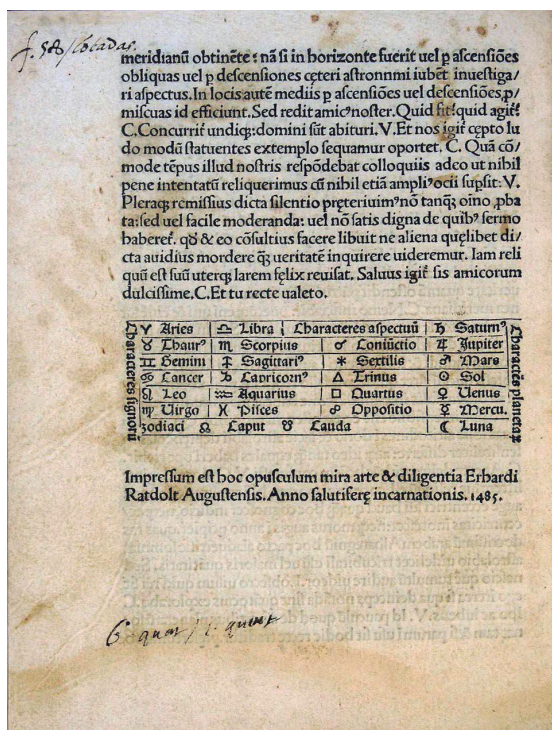 f. 58 / locadas.
meridianū obtinēte: nā si in horizonte fuerit uel p ascensiōes
obliquas uel p descensiones cęteri astronnmi iubēt inuestiga/
ri aspectus. In locis autē mediis p ascensiōes uel descensiōes, p/
miscuas id efficiunt. Sed redit amicꝰ noster. Quid fit: quid agit᷑
C. Concurrit᷑ undiqꝫ: domini sūt abituri. V. Et nos igit᷑ cępto lu
do modū statuentes extemplo sequamur oportet. C. Quā cō/
mode tēpus illud nostris respōdebat colloquiis adeo ut nibil
pene intentatū reliquerimus cū nibil etiā ampliꝰ ocii supsit: V.
Pleraqꝫ remissius dicta silentio pręteriuimꝰ nō tanqꝫ oīno, pba
ta: sed uel facile moderanda: uel nō satis digna de quibꝰ sermo
baberet᷑. qð & eo cōsultius facere libuit ne aliena quęlibet di/
cta auidius mordere qꝫ ueritatē inquirere uideremur. Iam reli
quū est suū uterqꝫ larem fęlix reuisat. Saluus igit᷑ sis amicorum
dulcissime. C. Et tu recte ualeto.
Characteres signorū
♈ Aries ♎ Libra Characteres aspectuū ♄ Saturnꝰ
♉ Thaurꝰ ♏ Scorpius ☌ Coniūctio ♃ Jupiter
♊ Gemini ♐ Sagittariꝰ ⚹ Sextilis ♂ Mars
♋ Cancer ♑ Capricornꝰ △ Trinus ☉ Sol
♌ Leo ♒ Aquarius □ Quartus ♀ Uenus
♍ Uirgo ♓ Pisces ☍ Oppositio ☿ Mercu.
zodiaci ☊ Caput ☋ Cauda ☾ Luna
Charactēs planetaꝝ
Impressum est boc opusculum mira arte & diligentia Erbardi
Ratdolt Augustensis. Anno salutiferę incarnationis. 1485.